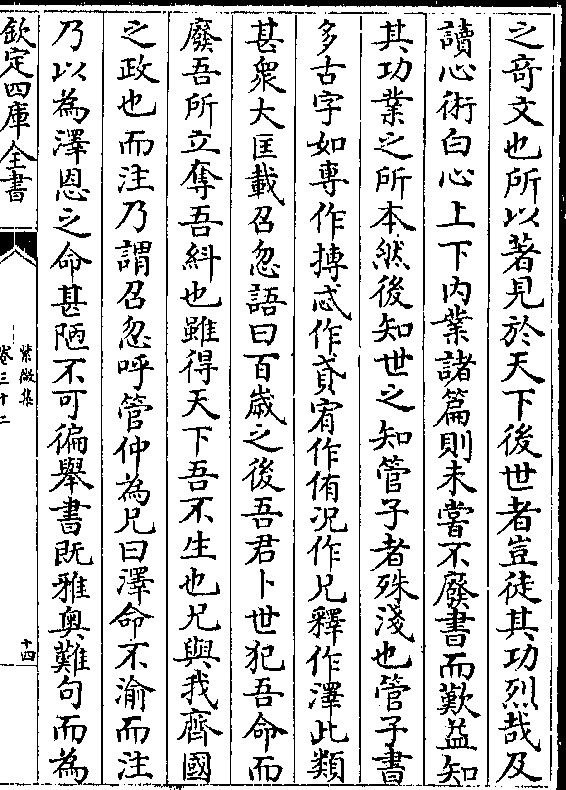 之竒文也所以著見於天下後世者豈徒其功烈哉及
讀心術白心上下内業諸篇則未嘗不廢書而歎益知
其功業之所本然後知世之知管子者殊淺也管子書
多古字如專作摶忒作貣宥作侑況作兄釋作澤此類
甚衆大匡載召忽語曰百嵗之後吾君卜世犯吾命而
廢吾所立奪吾糾也雖得天下吾不生也兄與我齊國
之政也而注乃謂召忽呼管仲為兄曰澤命不渝而注
乃以為澤恩之命甚陋不可徧舉書既雅奥難句而為
欽定四庫全書
紫微集
卷三十二
十四